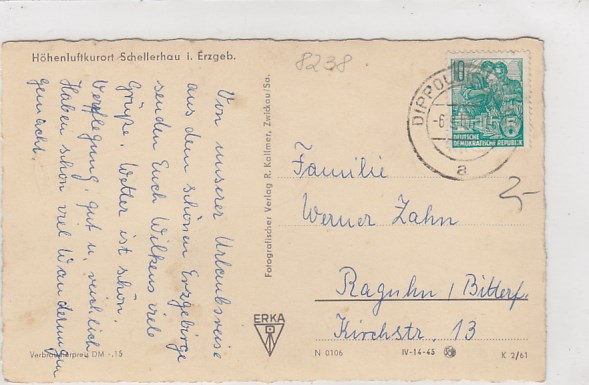 Höhenluftkurort Schellerhau i. Erzgeb.
8238
Von unserer Urlaubsreise
aus dem schönen Erzgebirge
senden Euch Wilkens viele
Grüße. Wetter ist schön.
Verpflegung gut u. reichlich
Haben schon viel Wanderungen
gemacht.
Fotografischer Verlag R. Kallmer, Zwickau/Sa.
DIPPOL
-6.
a
10
5
DEUTSCHE
DEMOKRATISCHE REPUBLIK
Familie
Werner Zahn
Raguhn / Bitterf.
Kirchstr. 13
ERKA
Verbraucherpreis DM -,15
N 0106
IV-14-45
K 2/61